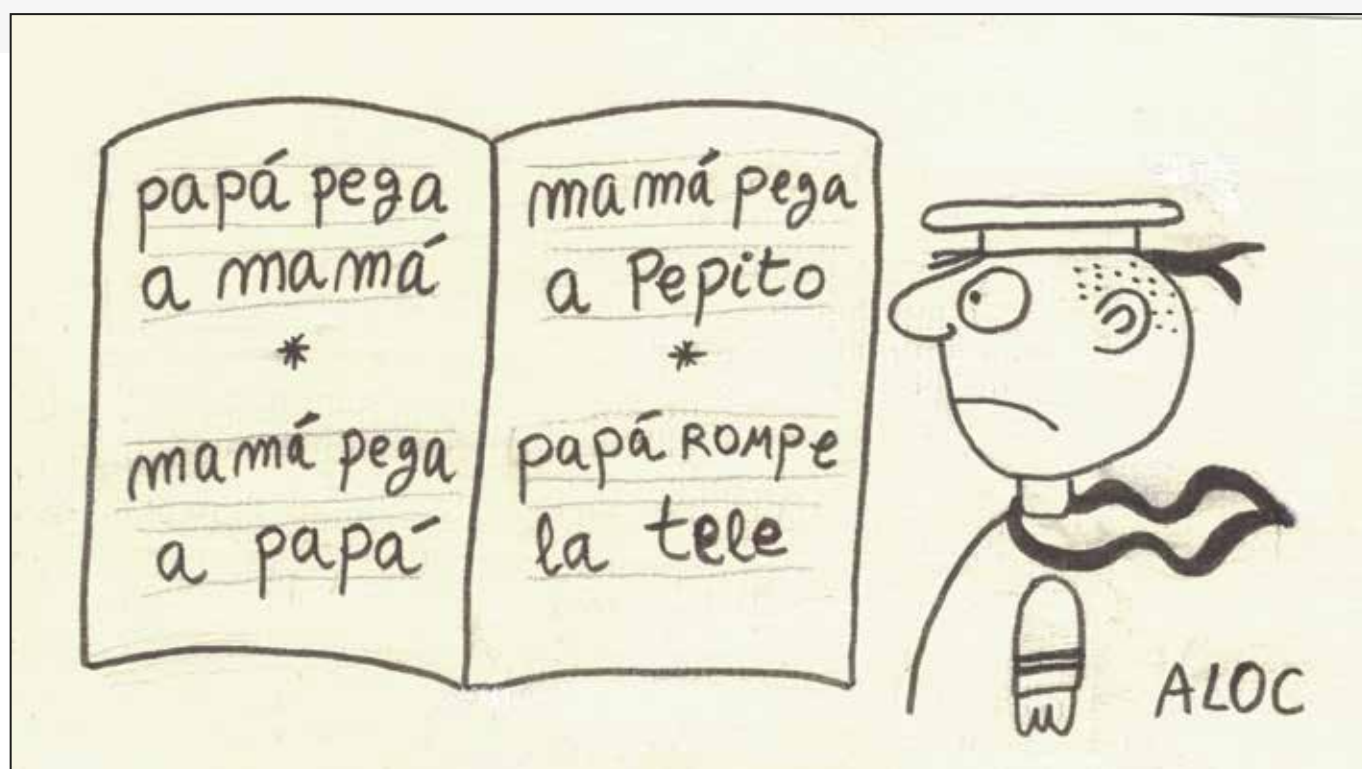 papá pega
a mamá
*
mamá pega
a papá
mamá pega
a Pepito
*
papá ROMPe
la tele
ALOC